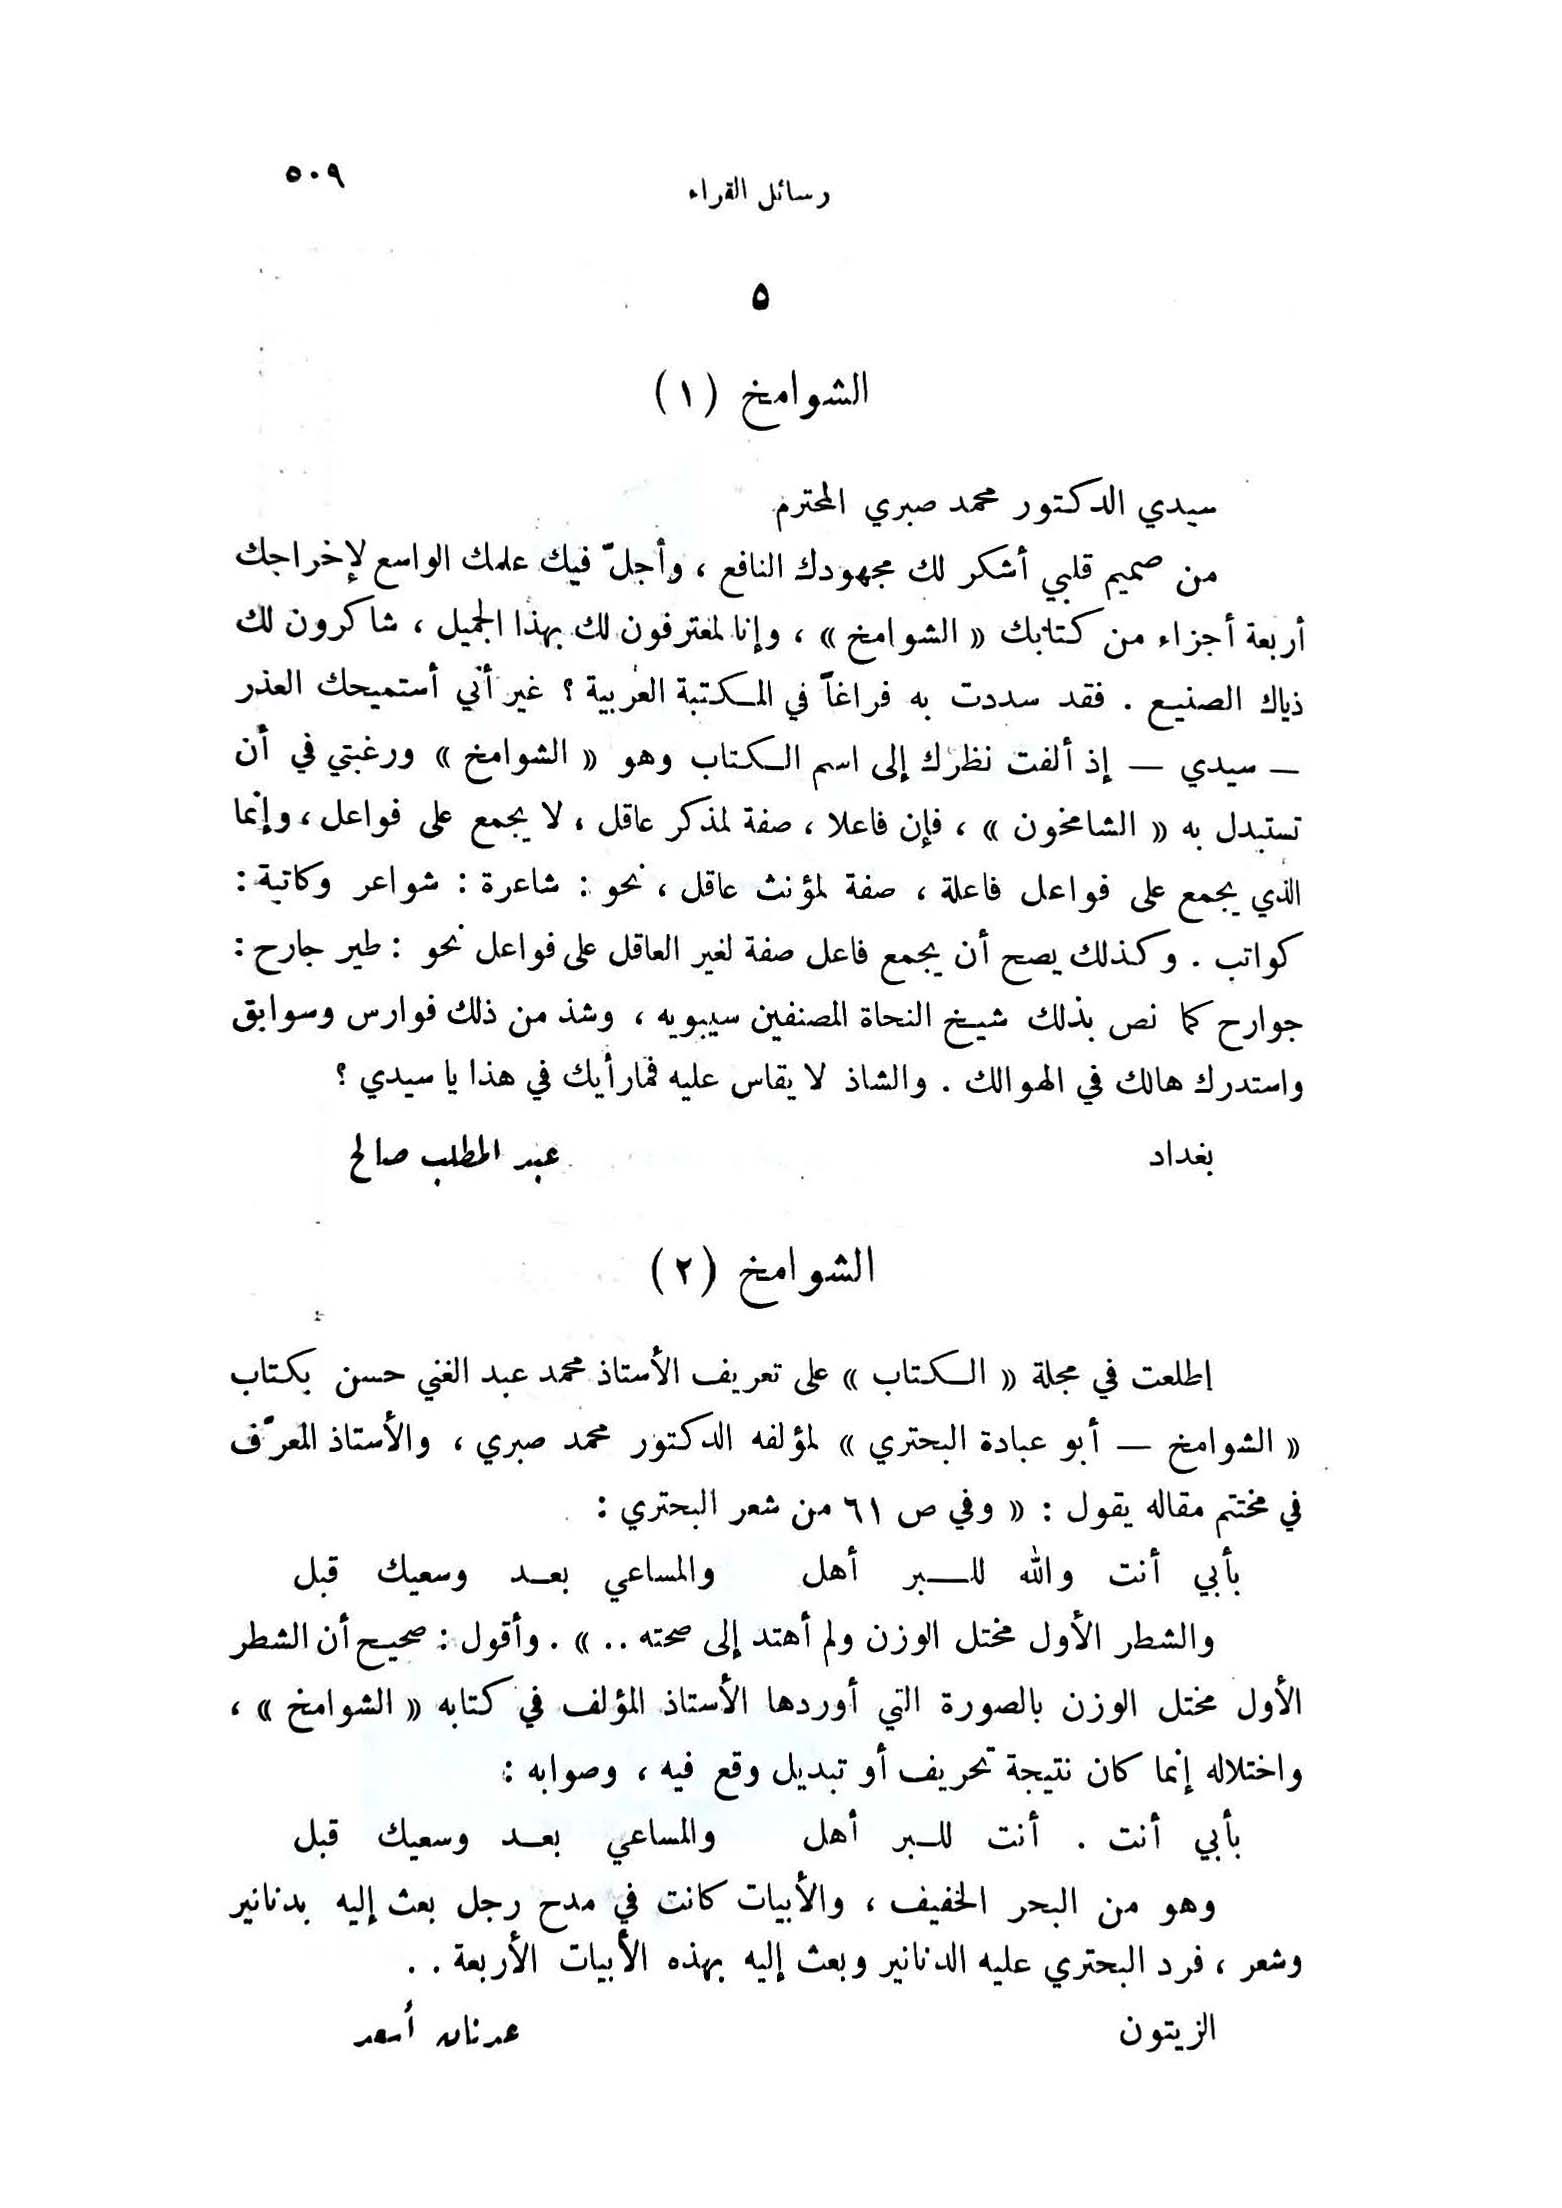 رسائل القراء ٥٠٩
٥
الشوامخ (١)
سيدي الدكتور محمد صبري المحترم
من صميم قلبي أشكر لك مجهودك النافع ، وأجلّ فيك علمك الواسع لإخراجك
أربعة أجزاء من كتابك « الشوامخ » ، وإنا لمعترفون لك بهذا الجميل ، شاكرون لك
ذياك الصنيع . فقد سددت به فراغاً في المكتبة العربية ؟ غير أني أستميحك العذر
— سيدي — إذ ألفت نظرك إلى اسم الكتاب وهو « الشوامخ » ورغبتي في أن
تستبدل به « الشامخون » ، فإن فاعلا ، صفة لمذكر عاقل ، لا يجمع على فواعل ، وإنما
الذي يجمع على فواعل فاعلة ، صفة لمؤنث عاقل ، نحو : شاعرة : شواعر وكاتبة :
كواتب . وكذلك يصح أن يجمع فاعل صفة لغير العاقل على فواعل نحو : طير جارح :
جوارح كما نص بذلك شيخ النحاة المصنفين سيبويه ، وشذ من ذلك فوارس وسوابق
واستدرك هالك في الهوالك . والشاذ لا يقاس عليه فما رأيك في هذا يا سيدي ؟
بغداد عبد المطلب صالح
الشوامخ (٢)
إطلعت في مجلة « الكتاب » على تعريف الأستاذ محمد عبد الغني حسن بكتاب
« الشوامخ — أبو عبادة البحتري » لمؤلفه الدكتور محمد صبري ، والأستاذ المعرّف
في مختتم مقاله يقول : « وفي ص ٦١ من شعر البحتري :
بأبي أنت والله للبر أهل والمساعي بعد وسعيك قبل
والشطر الأول مختل الوزن ولم أهتد إلى صحته .. » . وأقول : صحيح أن الشطر
الأول مختل الوزن بالصورة التي أوردها الأستاذ المؤلف في كتابه « الشوامخ » ،
واختلاله إنما كان نتيجة تحريف أو تبديل وقع فيه ، وصوابه :
بأبي أنت . أنت للبر أهل والمساعي بعد وسعيك قبل
وهو من البحر الخفيف ، والأبيات كانت في مدح رجل بعث إليه بدنانير
وشعر ، فرد البحتري عليه الدنانير وبعث إليه بهذه الأبيات الأربعة . .
الزيتون عدنان أسعد